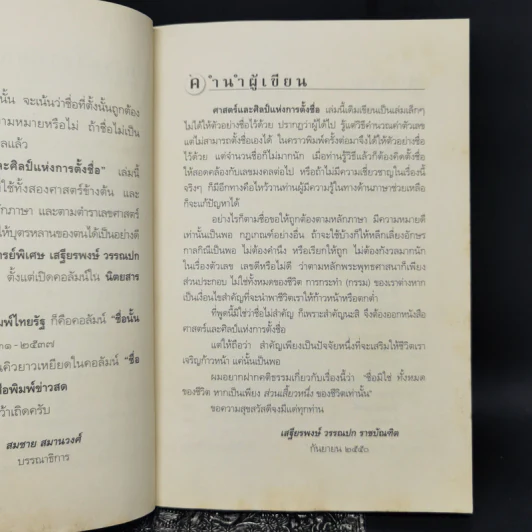 นั้น จะเน้นว่าชื่อที่ตั้งนั้นถูกต้อง
ความหมายหรือไม่ ถ้าชื่อไม่เป็น
ผลแล้ว
และศิลป์แห่งการตั้งชื่อ" เล่มนี้
ใช้ทั้งสองศาสตร์ข้างต้น และ
หลักภาษา และตามตำราเลขศาสตร์
ให้บุตรหลานของตนได้เป็นอย่างดี
ารย์พิเศษ เสฐียรพงษ์ วรรณปก
ตั้งแต่เปิดคอลัมน์ใน นิตยสาร
พิมพ์ไทยรัฐ ก็คือคอลัมน์ "ชื่อนั้น
๓๑ - ๒๕๓๗
คิวยาวเหยียดในคอลัมน์ "ชื่อ
สือพิมพ์ข่าวสด
ว้าเถิดครับ
สมชาย สมานวงศ์
บรรณาธิการ
คำนำผู้เขียน
ศาสตร์และศิลป์แห่งการตั้งชื่อ เล่มนี้เดิมเขียนเป็นเล่มเล็กๆ
ไม่ได้ให้ตัวอย่างชื่อไว้ด้วย ปรากฏว่าผู้ได้ไป รู้แต่วิธีคำนวณค่าตัวเลข
แต่ไม่สามารถตั้งชื่อเองได้ ในคราวพิมพ์ครั้งต่อมาจึงได้ให้ตัวอย่างชื่อ
ไว้ด้วย แต่จำนวนชื่อก็ไม่มากนัก เมื่อท่านรู้วิธีแล้วก็ต้องคิดตั้งชื่อ
ให้สอดคล้องกับเลขมงคลต่อไป หรือถ้าไม่มีความเชี่ยวชาญในเรื่องนี้
จริงๆ ก็มีอีกทางคือไหว้วานท่านผู้มีความรู้ในทางด้านภาษาช่วยเหลือ
ก็จะแก้ปัญหาได้
อย่างไรก็ตามชื่อขอให้ถูกต้องตามหลักภาษา มีความหมายดี
เท่านั้นเป็นพอ กฎเกณฑ์อย่างอื่น ถ้าจะใช้บ้างก็ให้หลีกเลี่ยงอักษร
กาลกิณีเป็นพอ ไม่ต้องคำนึง หรือเรียกให้ถูก ไม่ต้องกังวลมากนัก
ในเรื่องตัวเลข เลขดีหรือไม่ดี ว่าตามหลักพระพุทธศาสนาก็เพียง
ส่วนประกอบ ไม่ใช่ทั้งหมดของชีวิต การกระทำ (กรรม) ของเราต่างหาก
เป็นเงื่อนไขสำคัญที่จะนำพาชีวิตเราให้ก้าวหน้าหรือตกต่ำ
ที่พูดนี้มิใช่ว่าชื่อไม่สำคัญ ก็เพราะสำคัญนะสิ จึงต้องออกหนังสือ
ศาสตร์และศิลป์แห่งการตั้งชื่อ
แต่ให้ถือว่า สำคัญเพียงเป็นปัจจัยหนึ่งที่จะเสริมให้ชีวิตเรา
เจริญก้าวหน้า แค่นั้นเป็นพอ
ผมอยากฝากคติธรรมเกี่ยวกับเรื่องนี้ว่า "ชื่อมิใช่ ทั้งหมด
ของชีวิต หากเป็นเพียง ส่วนเสี้ยวหนึ่ง ของชีวิตเท่านั้น"
ขอความสุขสวัสดีจงมีแด่ทุกท่าน
เสฐียรพงษ์ วรรณปก ราชบัณฑิต
กันยายน ๒๕๕๐